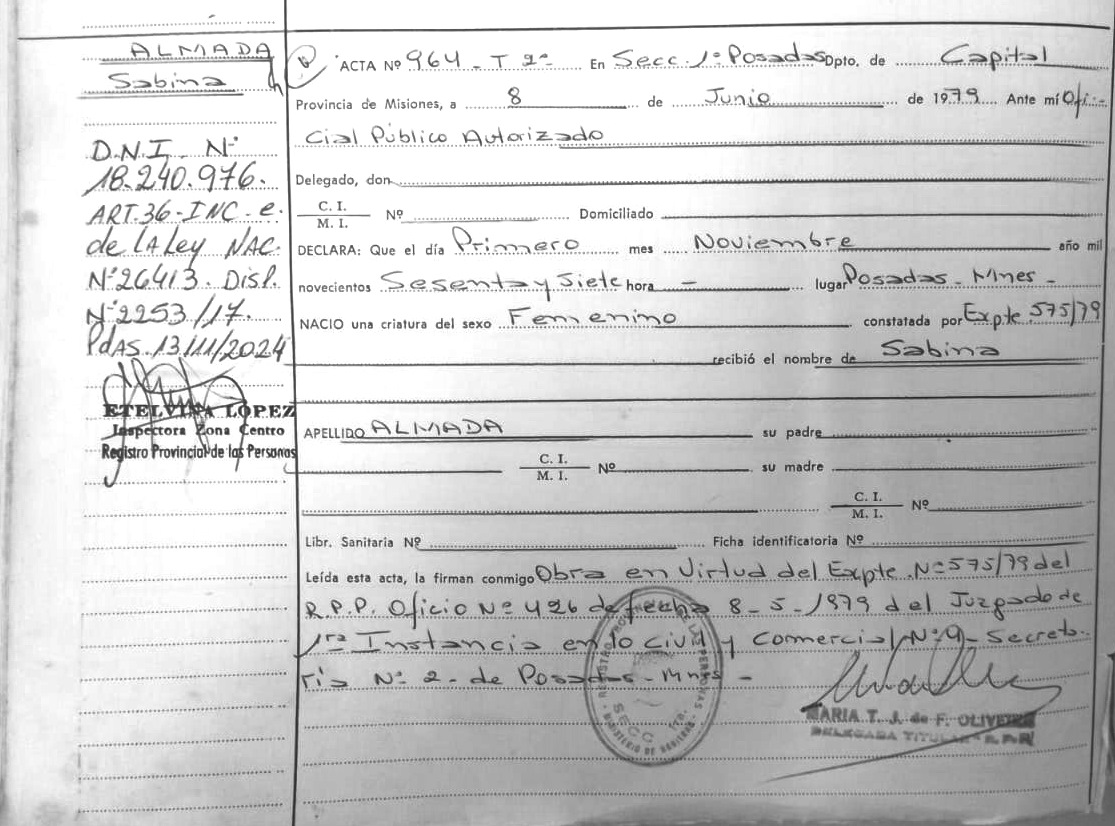 ALMADA
Sabina
D.N.I. Nº
18.240.976.
ART.36-INC-e.
de LA Ley NAC.
Nº26413. DISP.
Nº2253/17.
PdAS. 13/11/2024
ETELVINA LOPEZ
Inspectora Zona Centro
Registro Provincial de las Personas
ACTA Nº 964 - T 2º En Secc. 1º Posadas Dpto. de Capital
Provincia de Misiones, a 8 de Junio de 1979 Ante mí Ofi-
cial Público Autorizado
Delegado, don
C. I.
M. I. Nº Domiciliado
DECLARA: Que el día Primero mes Noviembre año mil
novecientos Sesenta y Siete hora - lugar Posadas - Mnes -
NACIO una criatura del sexo Femenino constatada por Expte. 575/79
recibió el nombre de Sabina
APELLIDO ALMADA su padre
C. I.
M. I. Nº su madre
C. I.
M. I. Nº
Libr. Sanitaria Nº Ficha identificatoria Nº
Leída esta acta, la firman conmigo Obra en Virtud del Expte. Nº 575/79 del
R.P.P. Oficio Nº 426 de fecha 8-5-1979 del Juzgado de
1ra Instancia en lo Civil y Comercial Nº 9 - Secreta-
ría Nº 2 - de Posadas - Mnes -
MARIA T. J. de F. OLIVEIRA
DELEGADA TITULAR - R.P.P.